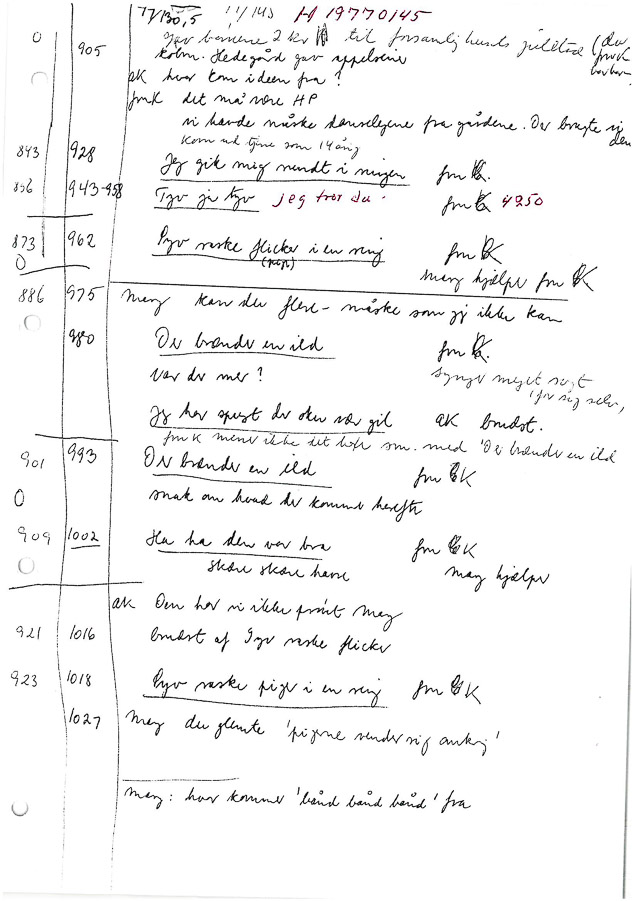 77/130,5 11/143 H 19770145
0 905 gav børnene 2 kr til forsamlingshusets juletræ (du
købm. Hedegård gav appelsiner fruK
AK hvor kom ideen fra?
fruK det må være HP
vi havde måske danselegene fra gårdene. Der brugte vi dem
kom ud tjene som 14 årig
843 928 Jeg gik mig rundt i ringen fru K.
856 943-958 Tyv jeg Tyv jeg tror du. fru K 4250
873 962 Syv raske flicker i en ring fru K
0 (piger) May hjælper fru K
886 975 May kan du flere - måske som jeg ikke kan
980 Der brænder en ild fru K.
var der mer? synger meget sagt
for sig selv,
AK brudst.
fruK mener ikke det hører sm. med 'Der brænder en ild
901 993 Der brænder en ild fru K
0 snak om hvad der kommer herefter
909 1002 Ha ha den var bra fru K
skære skære havre May hjælper
AK Den har vi ikke prøvet May
921 1016 brudst af Syv raske flicker
923 1018 Syv raske piger i en ring fru K
1027 May du glemte 'pigerne vender sig omkring'
May: hvor kommer 'bånd bånd bånd' fra